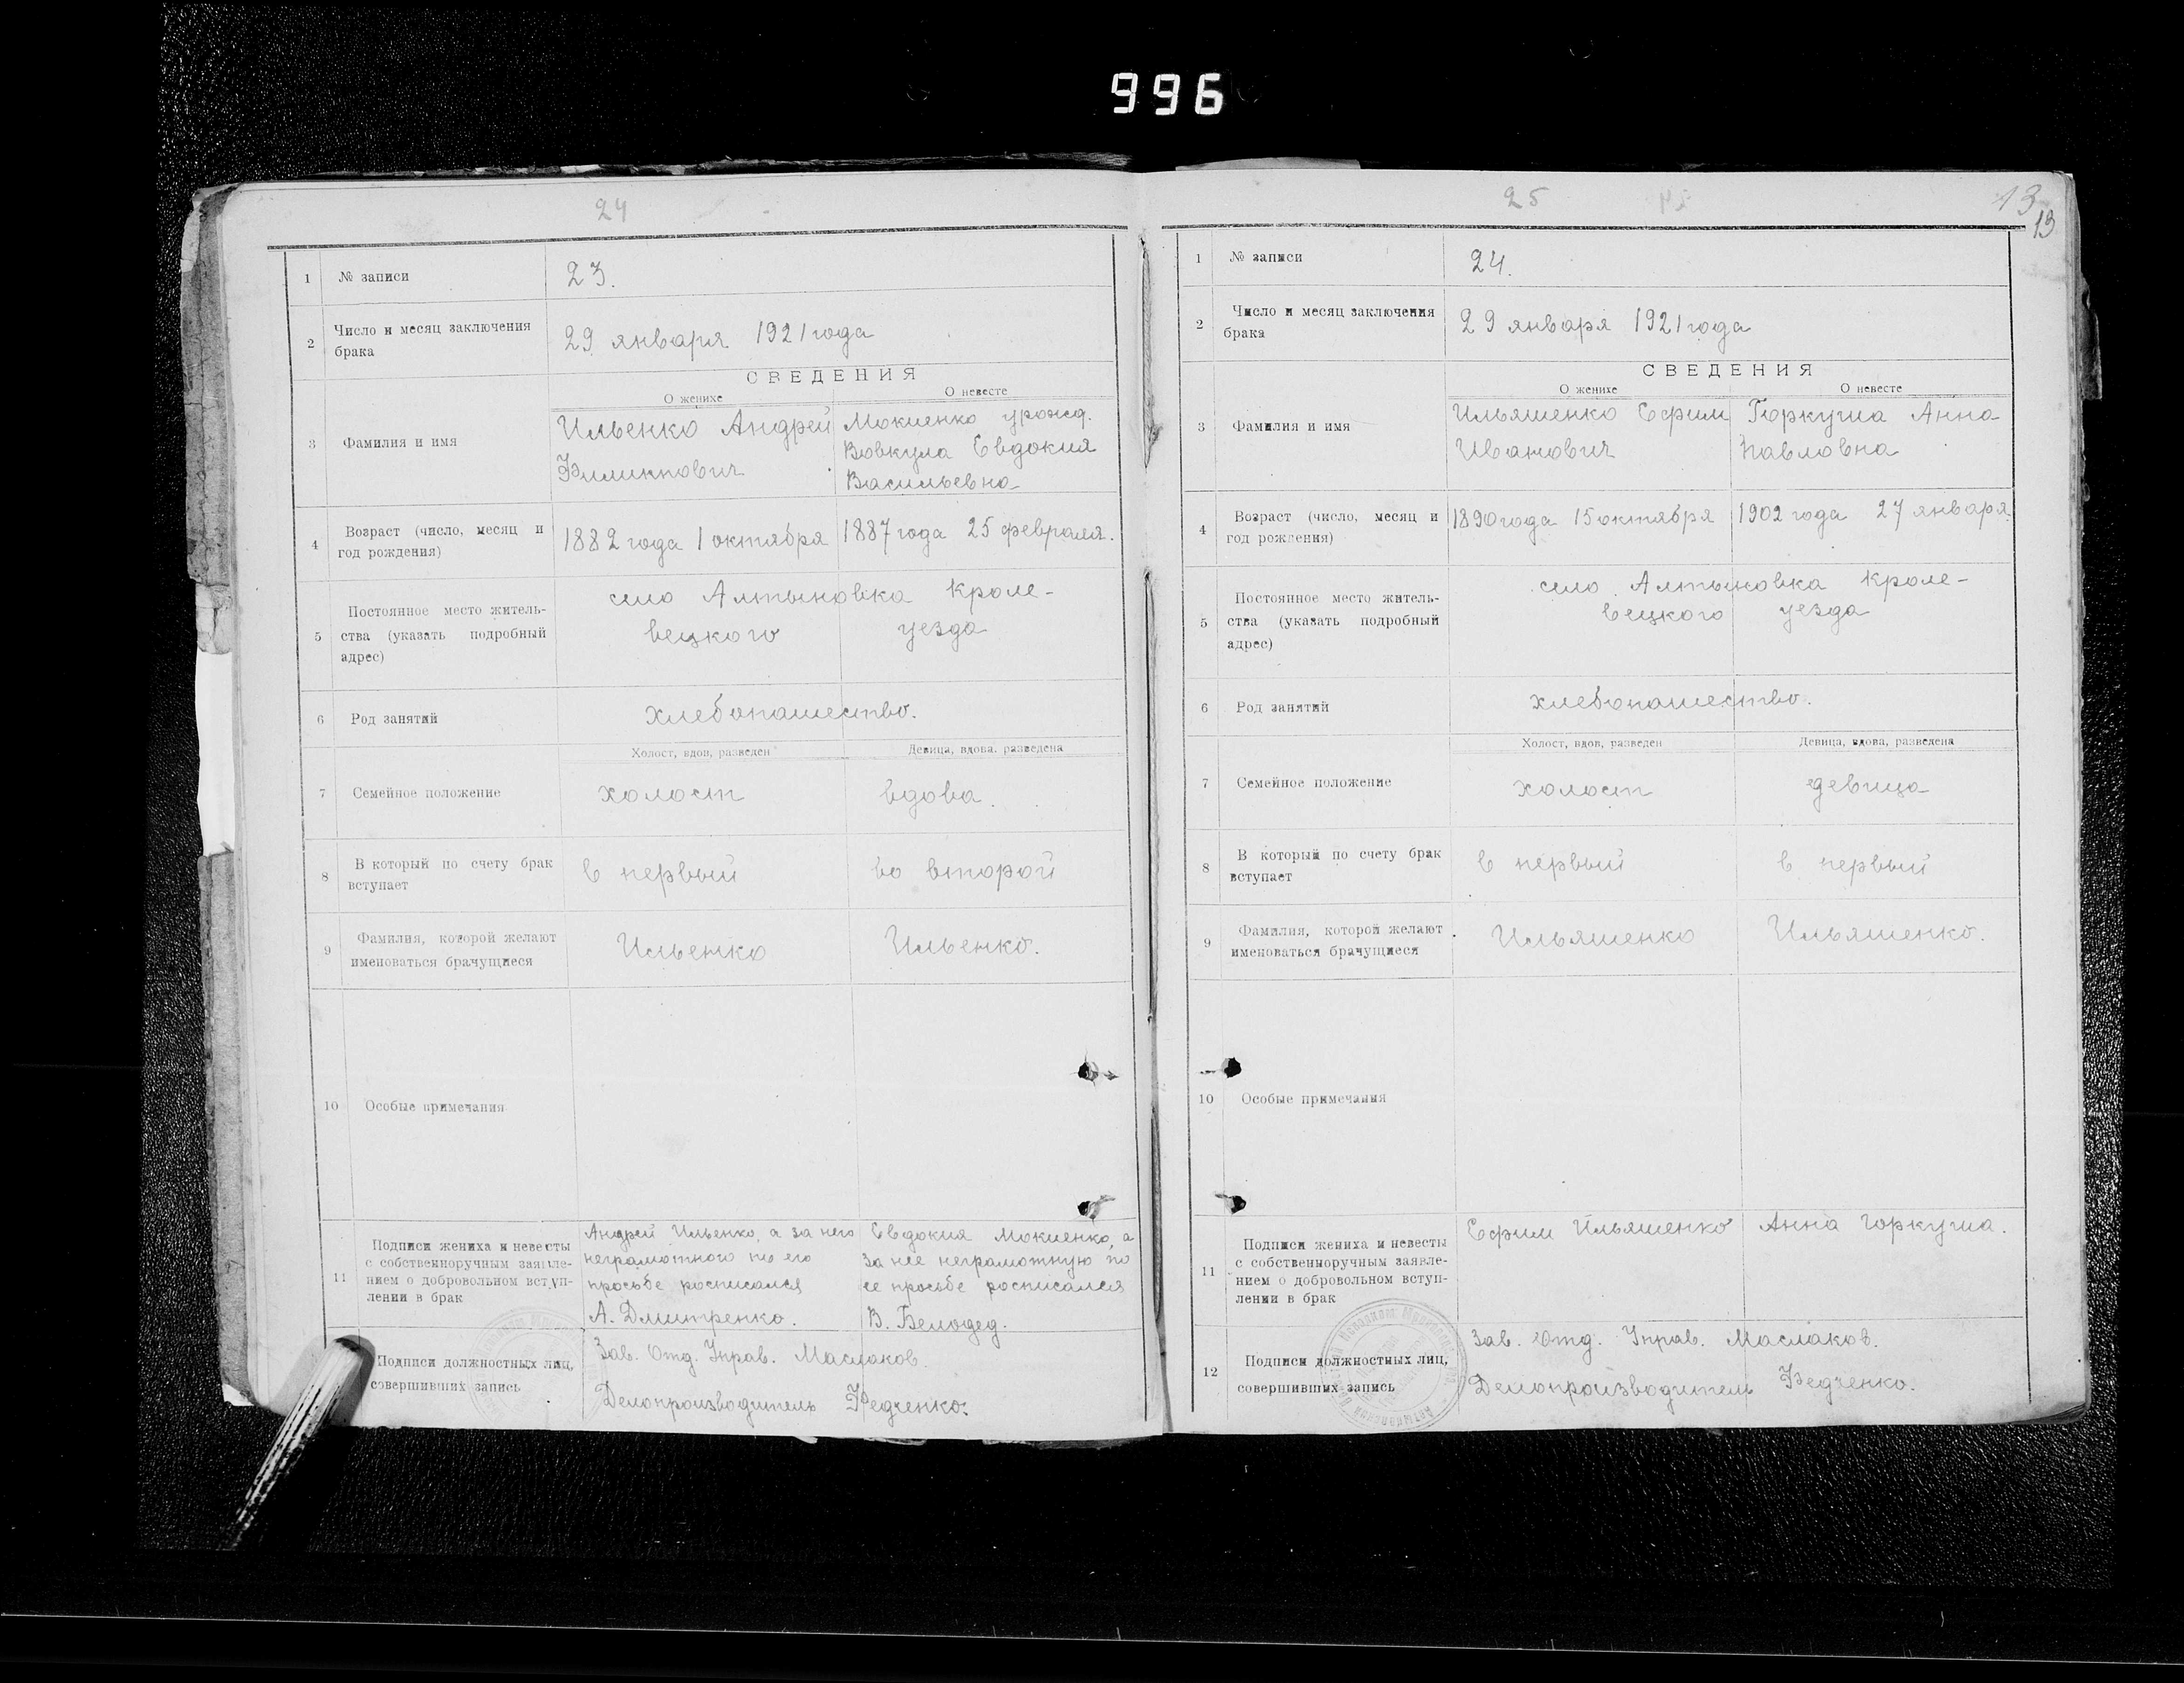 996
24
1 № записи 23.
2 Число и месяц заключения
брака
29 января 1921 года
СВЕДЕНИЯ
О женихе О невесте
3 Фамилия и имя
Ильенко Андрей
Филиппович
Мокиенко урожд.
Вовкула Евдокия
Васильевна
4 Возраст (число, месяц и
год рождения)
1882 года 1 октября
1887 года 25 февраля.
5 Постоянное место житель-
ства (указать подробный
адрес)
село Алтыновка Кроле-
вецкого уезда
6 Род занятий хлебопашество.
Холост, вдов, разведен Девица, вдова, разведена
7 Семейное положение холост вдова.
8 В который по счету брак
вступает
в первый во второй
9 Фамилия, которой желают
именоваться брачущиеся
Ильенко Ильенко.
10 Особые примечания
11 Подписи жениха и невесты
с собственноручным заявле-
нием о добровольном вступ-
лении в брак
Андрей Ильенко, а за него
неграмотного по его
просьбе росписался
А. Дмитренко.
Евдокия Мокиенко, а
за нее неграмотную по
ее просьбе росписался
В. Белодед.
Подписи должностных лиц,
совершивших запись
Зав. Отд. Управ. Маслаков.
Делопроизводитель Федченко.
25
13
13
1 № записи 24.
2 Число и месяц заключения
брака
29 января 1921 года
СВЕДЕНИЯ
О женихе О невесте
3 Фамилия и имя
Ильяшенко Ефим
Иванович
Горкуша Анна
Павловна
4 Возраст (число, месяц и
год рождения)
1890 года 15 октября
1902 года 27 января.
5 Постоянное место житель-
ства (указать подробный
адрес)
село Алтыновка Кроле-
вецкого уезда
6 Род занятий хлебопашество.
Холост, вдов, разведен Девица, вдова, разведена
7 Семейное положение холост девица
8 В который по счету брак
вступает
в первый в первый
9 Фамилия, которой желают
именоваться брачущиеся
Ильяшенко Ильяшенко.
10 Особые примечания
11 Подписи жениха и невесты
с собственноручным заявле-
нием о добровольном вступ-
лении в брак
Ефим Ильяшенко Анна Горкуша.
12 Подписи должностных лиц,
совершивших запись
Зав. Отд. Управ. Маслаков.
Делопроизводитель Федченко.